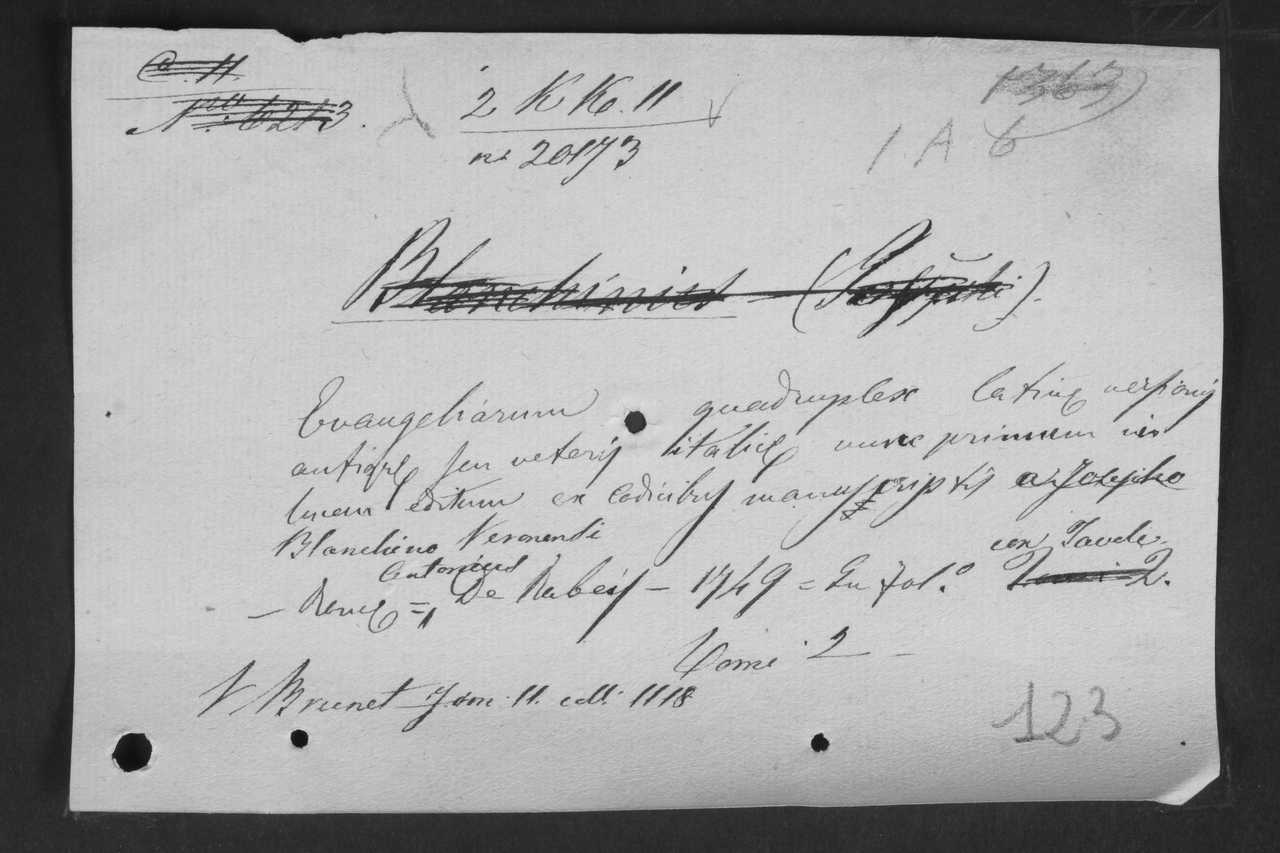 C. 11.
N.ro 6213.
2 KK. 11
no 20173
1363
1 A 6
Blanchinius — (Josephi).
Evangeliarum quadruplex latinę versionis
antiquę seu veteris italicę nunc primum in
lucem editum ex codicibus manuscriptis a Josepho
Blanchino Veronensi
con Tavole.
Antonius
— Romę = De Rubeis — 1749 = In fol.o Tomi 2.
Tomi 2 —
V Brunet Tom 11. coll. 1118
123